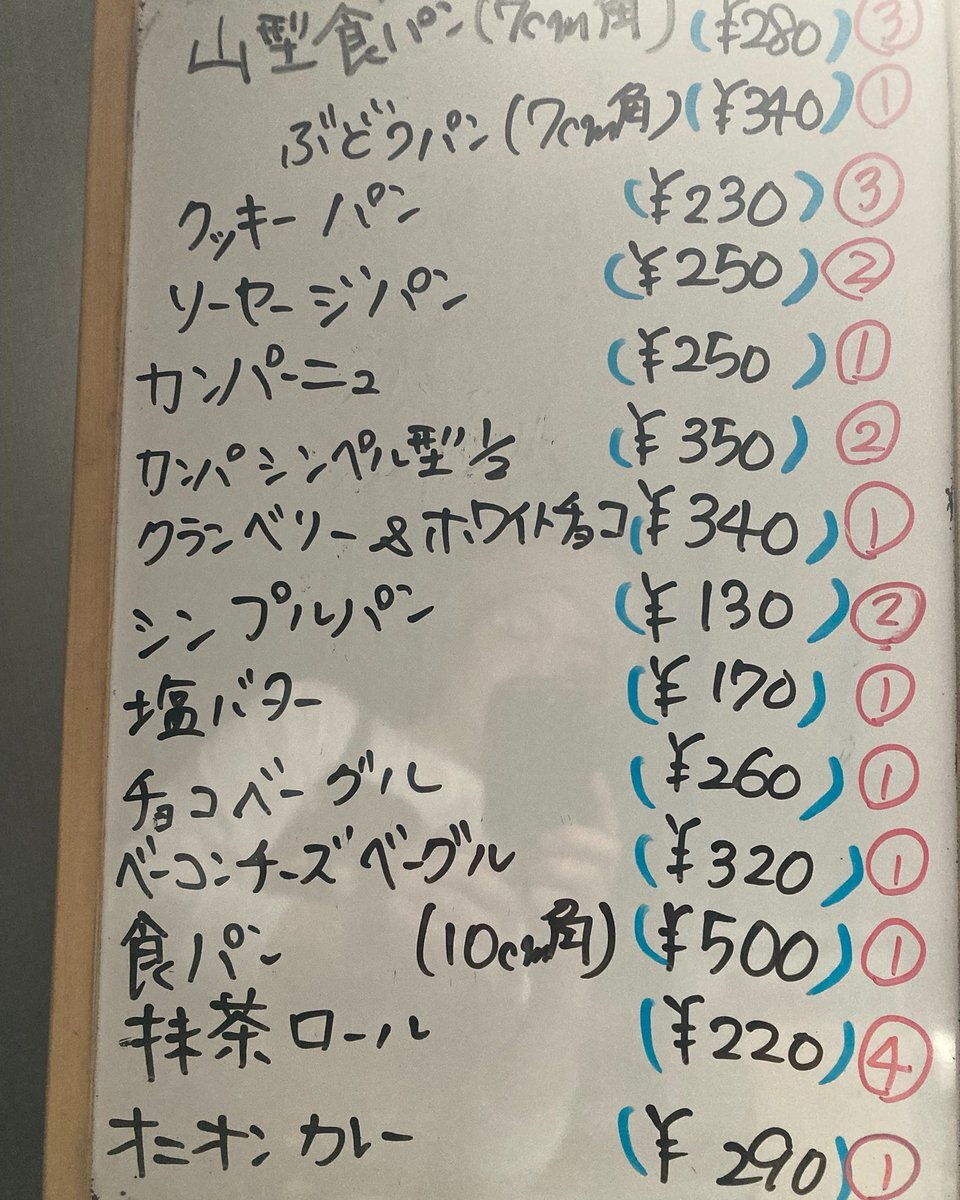 山型食パン(7cm角) (¥280) ③
ぶどうパン(7cm角) (¥340) ①
クッキーパン (¥230) ③
ソーセージパン (¥250) ②
カンパーニュ (¥250) ①
カンパシンペル型1/2 (¥350) ②
クランベリー&ホワイトチョコ (¥340) ①
シンプルパン (¥130) ②
塩バター (¥170) ①
チョコベーグル (¥260) ①
ベーコンチーズベーグル (¥320) ①
食パン (10cm角) (¥500) ①
抹茶ロール (¥220) ④
オニオンカレー (¥290) ①